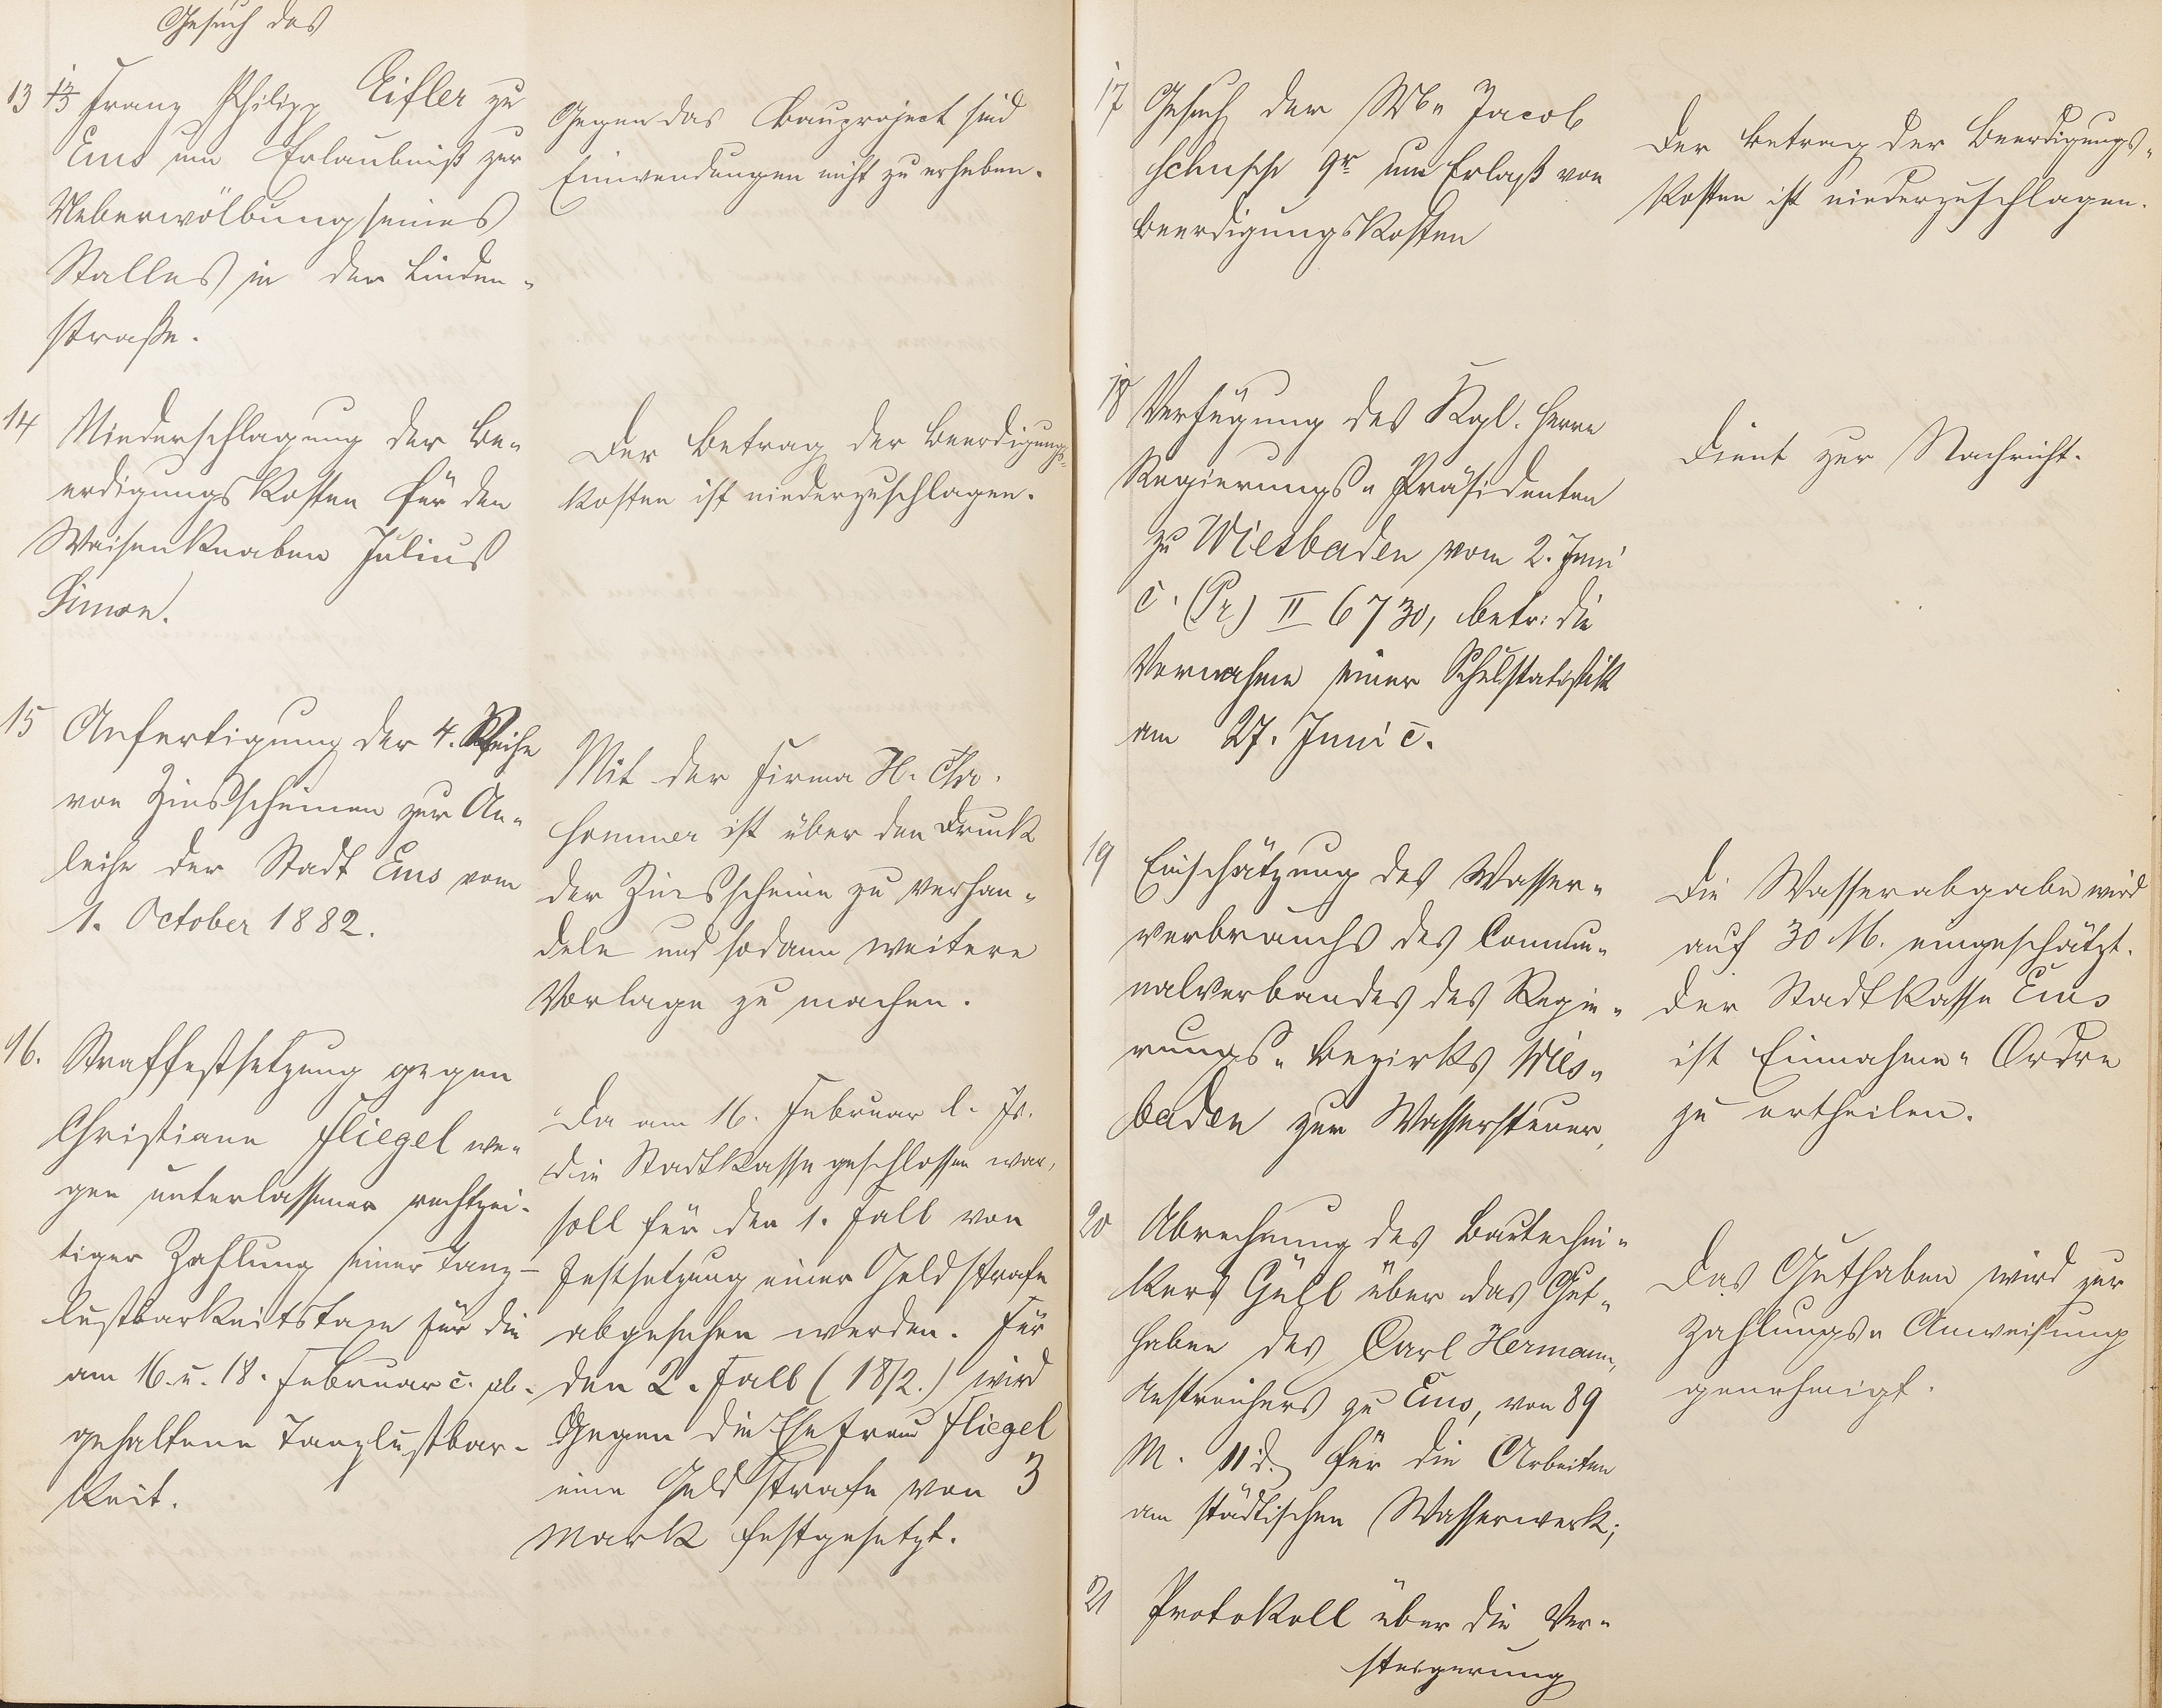 Gesuch des
13 13 Franz Philipp Eifler zu
Ems um Erlaubniß zur
Ueberwölbung seines
Stalles in der Linden-
straße.
Gegen das Bauproject sind
Einwendungen nicht zu erheben.
14 Niederschlagung der Be-
erdigungskosten für den
Waisenknaben Julius
Simon.
Der Betrag der Beerdigungs-
kosten ist niederzuschlagen.
15 Anfertigung der 4. Reihe
von Zinsscheinen zur An-
leihe der Stadt Ems vom
1. October 1882.
Mit der Firma H. Chr.
Sommer ist über den Druck
der Zinsscheine zu verhan-
deln und sodann weitere
Vorlage zu machen.
16. Straffestsetzung gegen
Christiane Fliegel we-
gen unterlassener rechtzei-
tiger Zahlung einer Tanz-
lustbarkeitstaxe für die
am 16. u. 18. Februar c. ab-
gehaltene Tanzlustbar-
keit.
Da am 16. Februar l. Js.
die Stadtkasse geschlossen war,
soll für den 1. Fall von
Festsetzung einer Geldstrafe
abgesehen werden. Für
den 2. Fall (18/2.) wird
gegen die Ehefrau Fliegel
eine Geldstrafe von 3
Mark festgesetzt.
17 Gesuch der Wb. Jacob
um Erlaß von
Beerdigungskosten
Der Betrag der Beerdigungs-
kosten ist niederzuschlagen.
18 Verfügung des Kgl. Herrn
Regierungs-Präsidenten
zu Wiesbaden vom 2. Juni
c. (Pr) II 6730, betr: die
Vornahme einer Schulstatistik
am 27. Juni c.
Dient zur Nachricht.
19 Einschätzung des Wasser-
verbrauchs des Commu-
nalverbandes des Regie-
rungs-Bezirks Wies-
baden zur Wassersteuer,
Die Wasserabgabe wird
auf 30 M. eingeschätzt.
Der Stadtkasse Ems
ist Einnahme-Ordre
zu ertheilen.
20 Abrechnung des Bautechni-
kers Gühl über das Gut-
haben des Carl Hermann,
Anstreichers zu Ems, von 89
M. 11 d. für die Arbeiten
am städtischen Wasserwerk;
Das Guthaben wird zur
Zahlungs-Anweisung
genehmigt.
21 Protokoll über die Ver-
steigerung